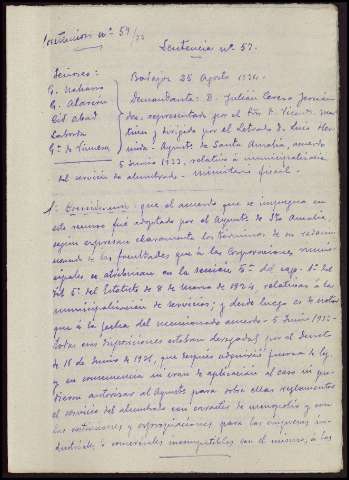 nº 59/33
Sentencia nº 57.
Señores:
G. Naharro
G. Alarcón
Cid Abad
Laborda
Gª de Limera
Badajoz 25 Agosto 1934.
Demandante: D. Julián Cerezo Fernán-
dez, representado por el D. Vicente Mar-
tínez y dirigido por el Letrado D. Luis Her-
mida: Ayuntº de Santa Amalia, acuerdo
5 Junio 1933, relativo a municipalización
del servicio de alumbrado - ministerio fiscal.
1º Considerando: que el acuerdo que se impugna en
este recurso fué adoptado por el Ayuntº de Stª Amalia,
según expresan claramente los términos de su
las facultades que a las Corporaciones muni-
cipales se atribuían en la sección 5ª del cap. del
tít. 5º del Estatuto de 8 de Marzo de 1924, relativas a la
municipalización de servicios; y desde luego es de notar
que a la fecha del mencionado acuerdo - 5 Junio 1933 -
todas esas disposiciones estaban derogadas por el Decreto
de 16 de Junio de 1931, que después adquirió fuerza de ley,
y en consecuencia ni eran de aplicación al caso ni pu-
dieron autorizar al Ayuntº para sobre ellas reglamentar
el servicio del alumbrado con carácter de monopolio y con
las y expropiaciones para las empresas in-
dustriales o comerciales incompatibles con el mismo, a las